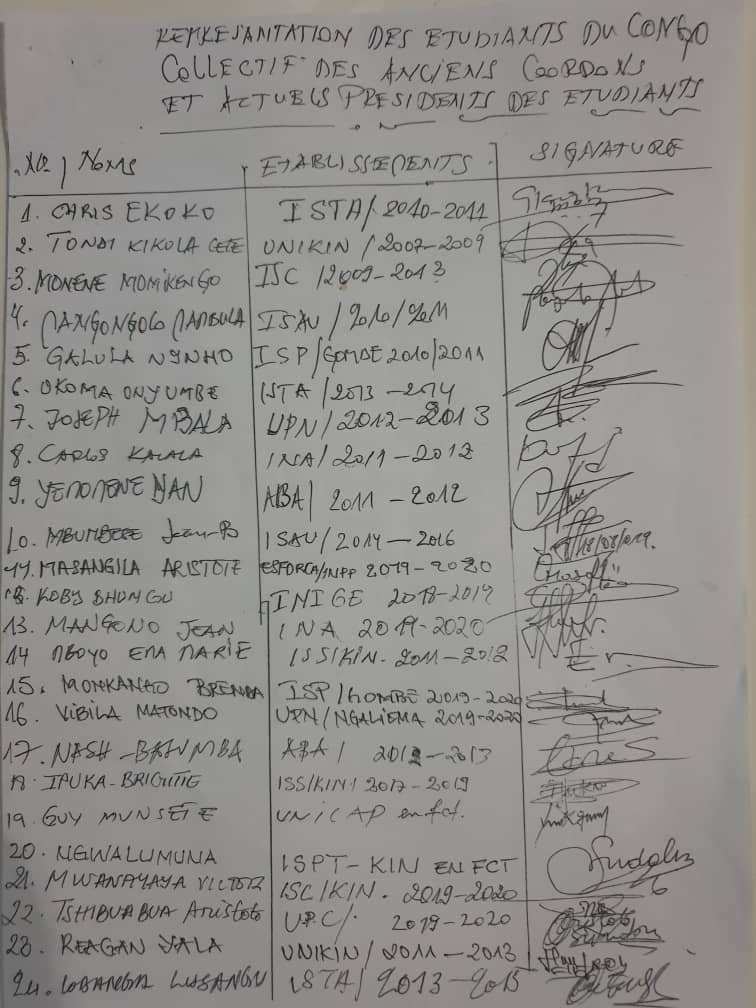 REPRESANTATION DES ETUDIANTS DU CONGO
COLLECTIF DES ANCIENS COORDONS
ET ACTUELS PRESIDENTS DES ETUDIANTS
NO NOMS ETABLISSEMENTS SIGNATURE
1. CHRIS EKOKO ISTA/2010-2011
2. TONDI KIKOLA UNIKIN/2007-2009
3. MONENE MOMIKENGO ISC/2009-2013
4. ISAU/2010/2011
5. GALULA NYNHO ISP/GOMBE 2010/2011
6. OKOMA ONYUMBE ISTA/2013-2014
7. JOSEPH MBALA UPN/2012-2013
8. CARLOS KALALA INA/2011-2012
9. ABA/2011-2012
10. MBUMBERE Jean-B ISAU/2014-2016
11. MASANGILA ARISTOTE ESFORCA/INPP 2019-2020
KOBY BHONGU INIGE 2018-2019
13. MANGONO JEAN INA 2019-2020
14 NGOYO EMA MARIE ISSIKIN. 2011-2012
15. MONKANHO BRENDA ISP/GOMBE 2019-2020
16. VIBILA MATONDO UPN/NGALIEMA 2019-2020
17. NASH-BAJUMBA ABA/2012-2013
18. IPUKA-BRIGITTE ISSIKIN/2017-2019
19. GUY MUNSETE UNICAP en fct.
20. NGWALUMUNA ISPT-KIN EN FCT
21. MWANAYAYA VICTOR ISC/KIN. 2019-2020
22. TSHIBUABUA Aristote UPC/. 2019-2020
23. REAGAN YALA UNIKIN/2011-2013
24. LUSANGU ISTA/2013-2015